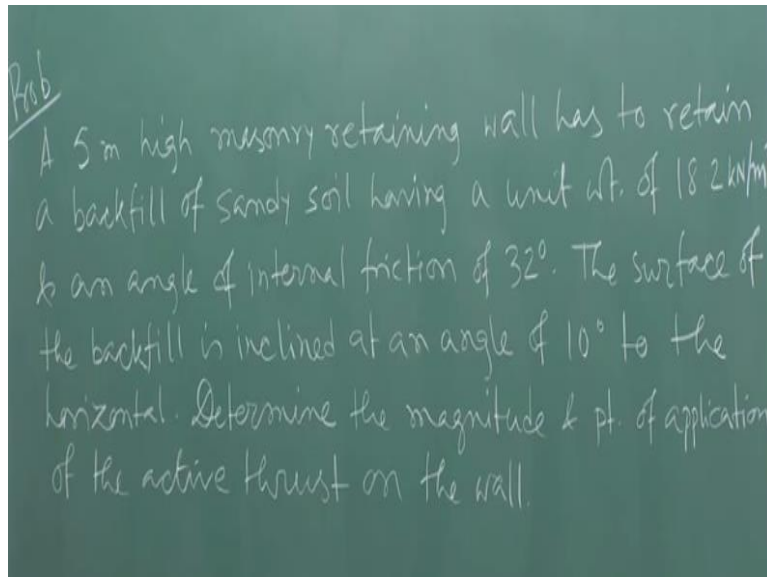 Prob
A 5 m high masonry retaining wall has to retain
a backfill of sandy soil having a unit wt. of 18.2 kN/m
& an angle of internal friction of 32°. The surface of
the backfill is inclined at an angle of 10° to the
horizontal. Determine the magnitude & pt. of application
of the active thrust on the wall.